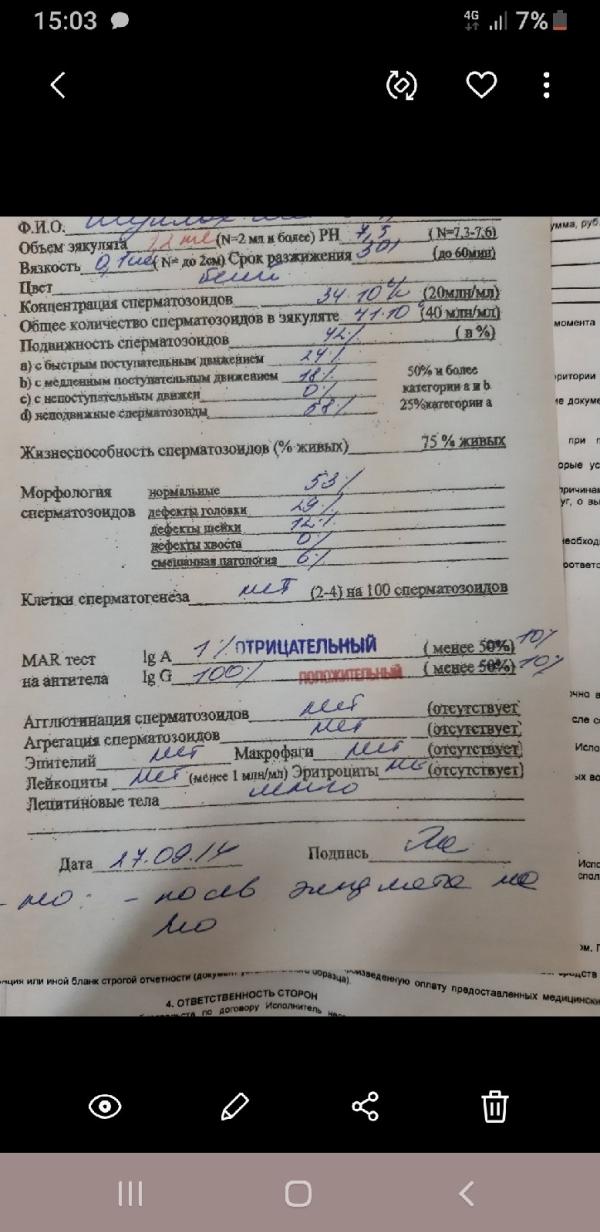 15:03 4G 7%
Ф.И.О.
Объем эякулята 1,2 мл (N=2 мл и более) РН 7,5 (N=7,3-7,6)
Вязкость 0,1 см (N= до 2см) Срок разжижения 30' (до 60мин)
Цвет белый
Концентрация сперматозоидов 34·10⁶/ (20млн/мл)
Общее количество сперматозоидов в эякуляте 41·10⁶ (40 млн/мл)
Подвижность сперматозоидов 42% (в %)
а) с быстрым поступательным движением 24%
b) с медленным поступательным движением 18% 50% и более
с) с непоступательным движен 0% категории a и b
d) неподвижные сперматозоиды 58% 25%категории a
Жизнеспособность сперматозоидов (% живых) 75 % живых
Морфология нормальные 53%
сперматозоидов дефекты головки 29%
дефекты шейки 12%
дефекты хвоста 0%
смешанная патология 6%
Клетки сперматогенеза нет (2-4) на 100 сперматозоидов
MAR тест Ig A 1% ОТРИЦАТЕЛЬНЫЙ ( менее 50%) 10%
на антитела Ig G 100% ПОЛОЖИТЕЛЬНЫЙ ( менее 50%) 10%
Агглютинация сперматозоидов нет (отсутствует
Агрегация сперматозоидов нет (отсутствует)
Эпителий нет Макрофаги нет (отсутствует)
Лейкоциты нет (менее 1 млн/мл) Эритроциты не (отсутствует)
Лецитиновые тела много
Дата 27.09.14 Подпись
- посев эякулята на
умма, руб.
момента
ритории
ие докуме
при п
орые ус
причинам
уг, о вы
необход
соответс
ично в
сле со
Испо
ых во
Испо
спол
ом. Г
едств
нция или иной бланк строгой отчетности (документ образца). произведенную оплату предоставленных медицински
4. ОТВЕТСТВЕННОСТЬ СТОРОН
по договору Исполнитель